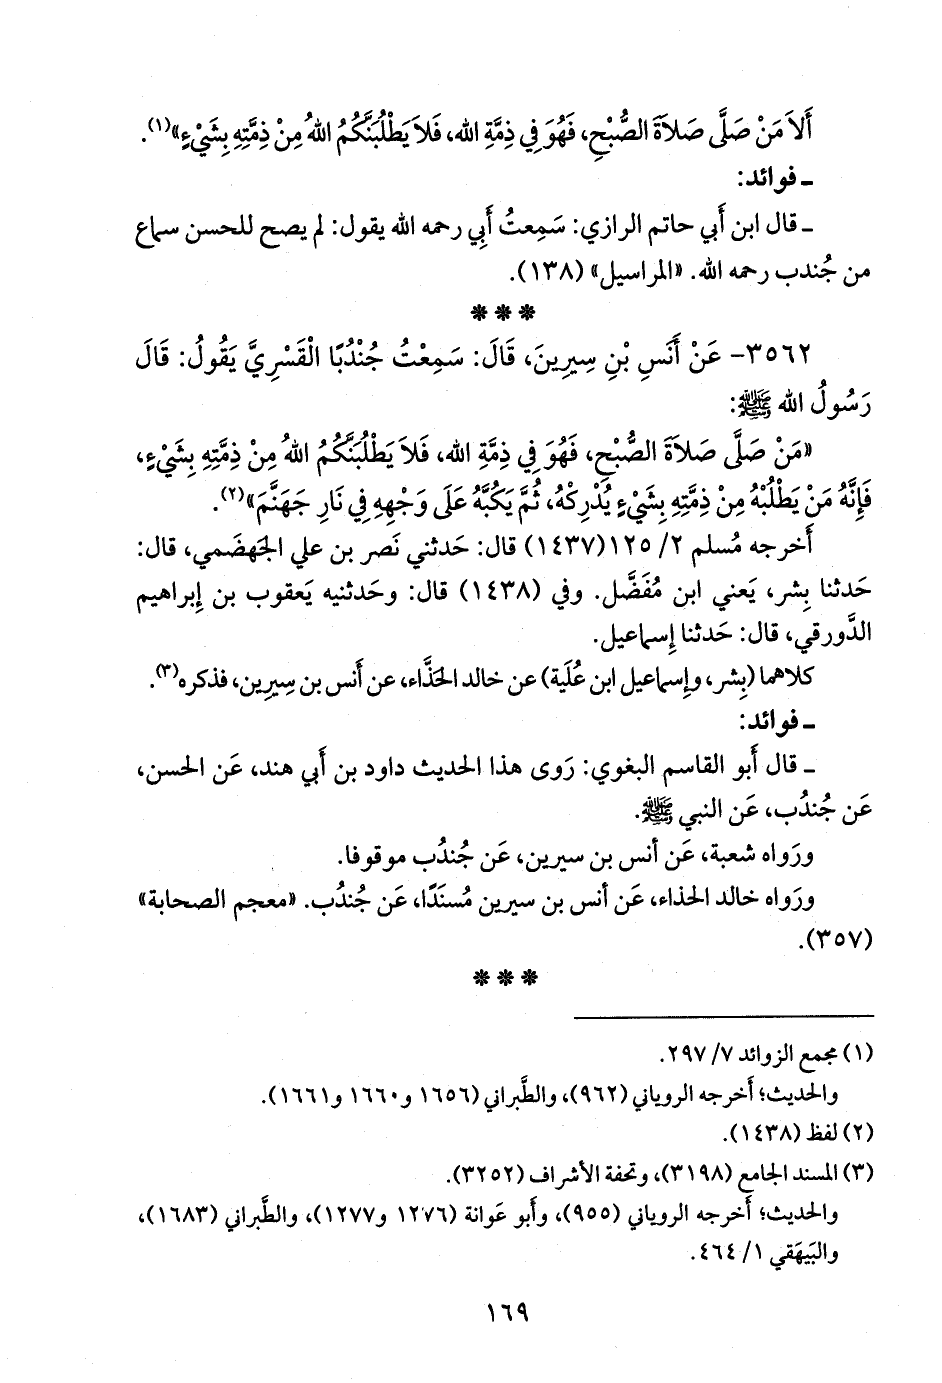 أَلاَ مَنْ صَلَّى صَلاَةَ الصُّبْحِ، فَهُوَ فِي ذِمَّةِ الله، فَلاَ يَطْلُبَنَّكُمُ اللهُ مِنْ ذِمَّتِهِ بِشَيْءٍ»(١).
ـ فوائد:
ـ قال ابن أَبي حاتم الرازي: سَمِعتُ أَبِي رحمه الله يقول: لم يصح للحسن سماع
من جُندب رحمه الله. «المراسيل» (١٣٨).
***
٣٥٦٢- عَنْ أَنَسِ بْنِ سِيرِينَ، قَالَ: سَمِعْتُ جُنْدُبًا الْقَسْرِيَّ يَقُولُ: قَالَ
رَسُولُ الله ﷺ:
«مَنْ صَلَّى صَلاَةَ الصُّبْحِ، فَهُوَ فِي ذِمَّةِ الله، فَلاَ يَطْلُبَنَّكُمُ اللهُ مِنْ ذِمَّتِهِ بِشَيْءٍ،
فَإِنَّهُ مَنْ يَطْلُبْهُ مِنْ ذِمَّتِهِ بِشَيْءٍ يُدْرِكْهُ، ثُمَّ يَكُبَّهُ عَلَى وَجْهِهِ فِي نَارِ جَهَنَّمَ»(٢).
أَخرجه مُسلم ٢/ ١٢٥(١٤٣٧) قال: حَدثني نَصر بن علي الجَهضَمي، قال:
حَدثنا بِشر، يَعني ابن مُفَضَّل. وفي (١٤٣٨) قال: وحَدثنيه يَعقوب بن إِبراهيم
الدَّورقي، قال: حَدثنا إِسماعيل.
كلاهما (بِشر، وإِسماعيل ابن عُلَية) عن خالد الحَذَّاء، عن أَنس بن سِيرِين، فذكره(٣).
ـ فوائد:
ـ قال أَبو القاسم البغوي: رَوى هذا الحديث داود بن أَبي هند، عَن الحسن،
عَن جُندُب، عَن النبي ﷺ.
ورَواه شعبة، عَن أنس بن سيرين، عَن جُندُب موقوفا.
ورَواه خالد الحذاء، عَن أنس بن سيرين مُسنَدًا، عَن جُندُب. «معجم الصحابة»
(٣٥٧).
***
(١) مجمع الزوائد ٧/ ٢٩٧.
والحديث؛ أَخرجه الروياني (٩٦٢)، والطَّبراني (١٦٥٦ و١٦٦٠ و١٦٦١).
(٢) لفظ (١٤٣٨).
(٣) المسند الجامع (٣١٩٨)، وتحفة الأشراف (٣٢٥٢).
والحديث؛ أَخرجه الروياني (٩٥٥)، وأَبو عَوانة (١٢٧٦ و١٢٧٧)، والطَّبراني (١٦٨٣)،
والبَيهَقي ١/ ٤٦٤.
١٦٩